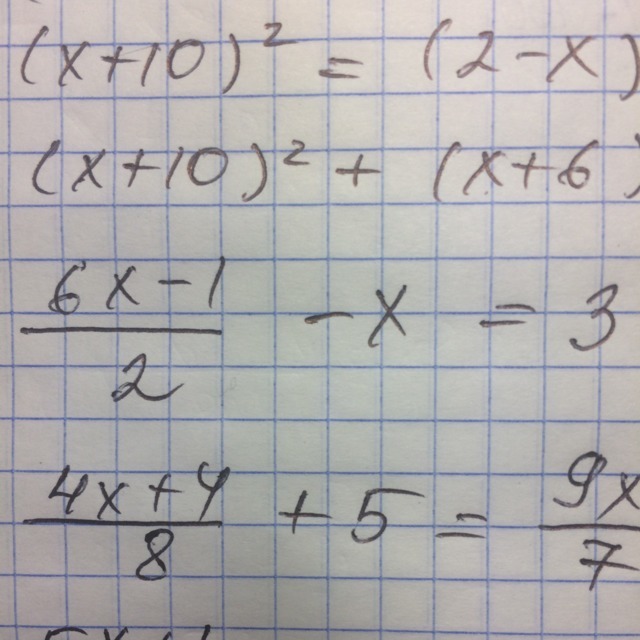 (x+10)² = (2-x)
(x+10)² + (x+6)
(6x-1)/2 - x = 3
(4x+4)/8 + 5 = 9x/7